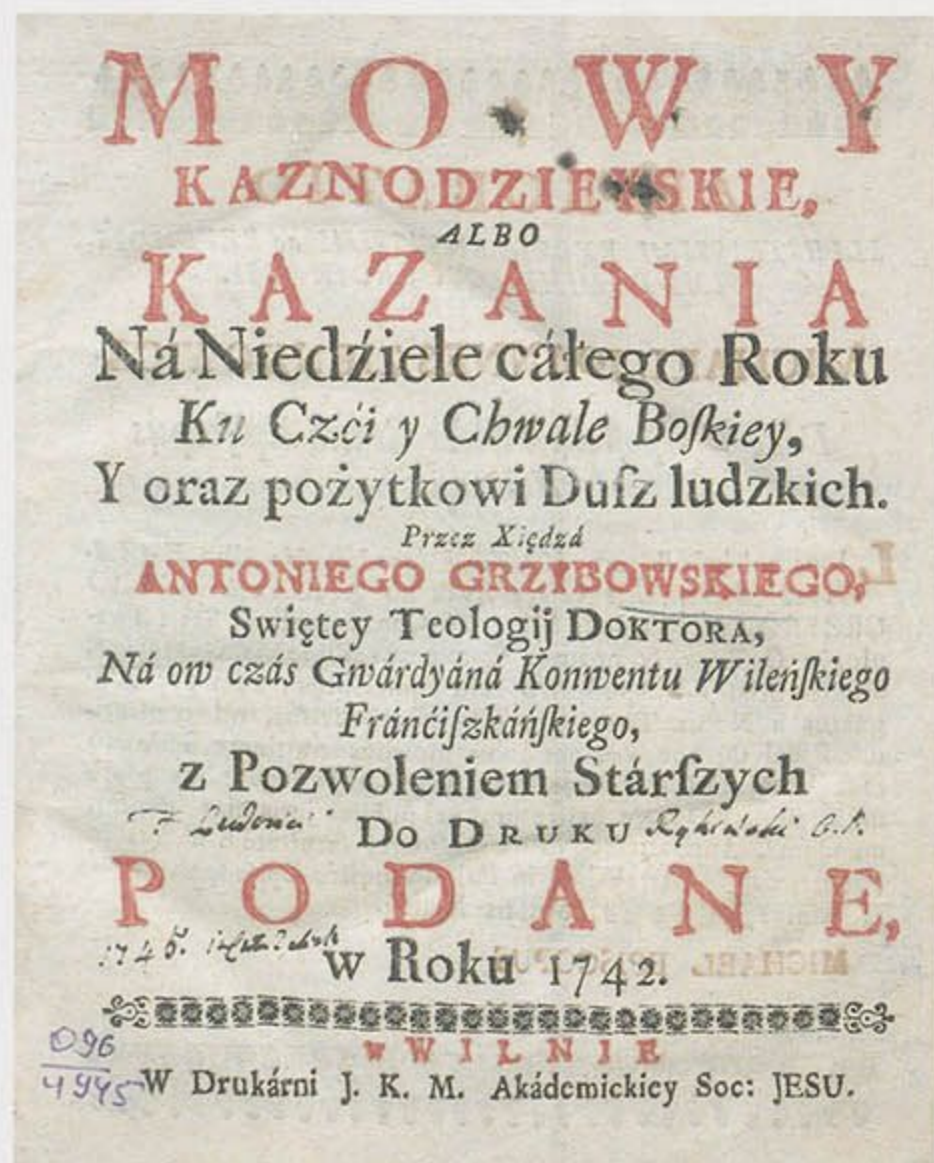 MOWY
KAZNODZIEYSKIE,
ALBO
KAZANIA
Ná Niedźiele cáłego Roku
Ku Czći y Chwale Boſkiey,
Y oraz pożytkowi Duſz ludzkich.
Przez Xiędzá
ANTONIEGO GRZYBOWSKIEGO,
Swiętey Teologij DOKTORA,
Ná ow czás Gwárdyáná Konwentu Wileńſkiego
Fránćiſzkáńſkiego,
z Pozwoleniem Stárſzych
DO DRUKU
PODANE,
1745.
w Roku 1742.
w WILNIE
096
4945
W Drukárni J. K. M. Akádemickiey Soc: JESU.